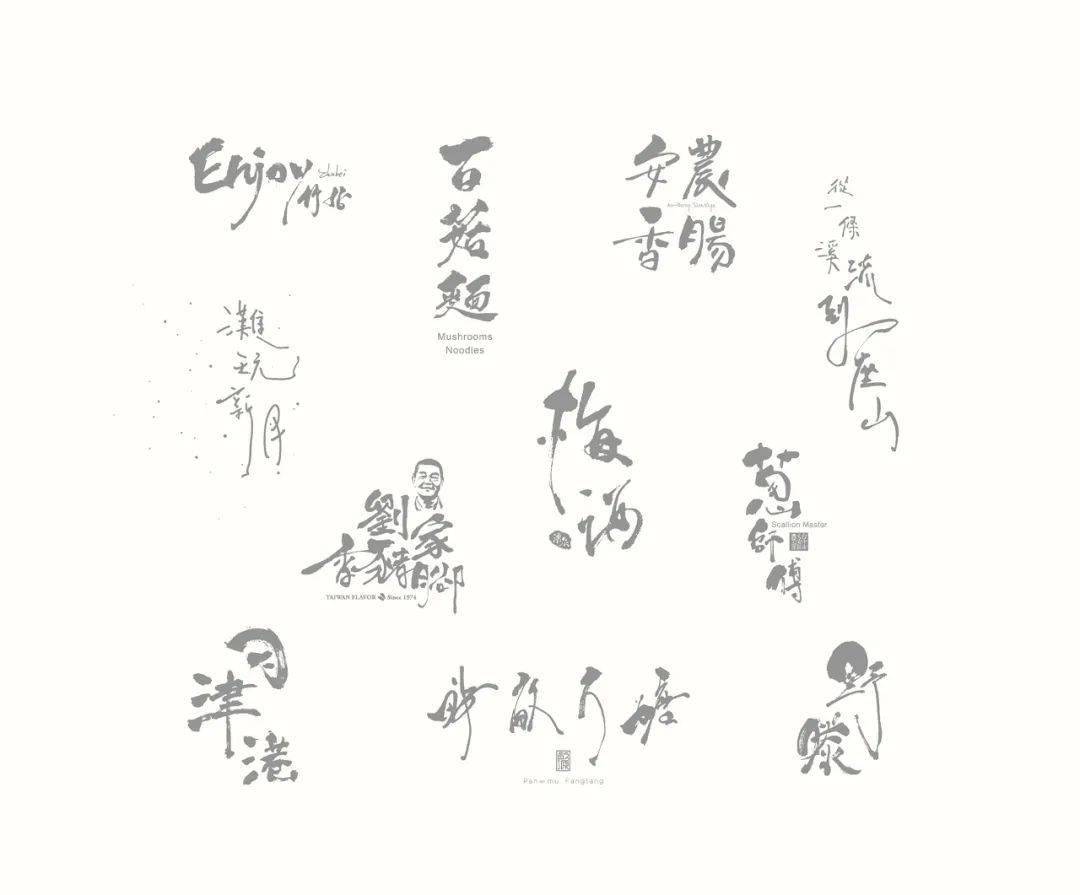 Enjoy
Zhubei
竹北
百菇麵
Mushrooms
Noodles
安農
香腸
從一條溪流到一座山
灘玩新月
梅
劉家
香豬腳
TAIWAN FLAVOR Since 1974
蔥師傅
Scallion Master
月津港
畝方
Pan-mu Fangtang
野